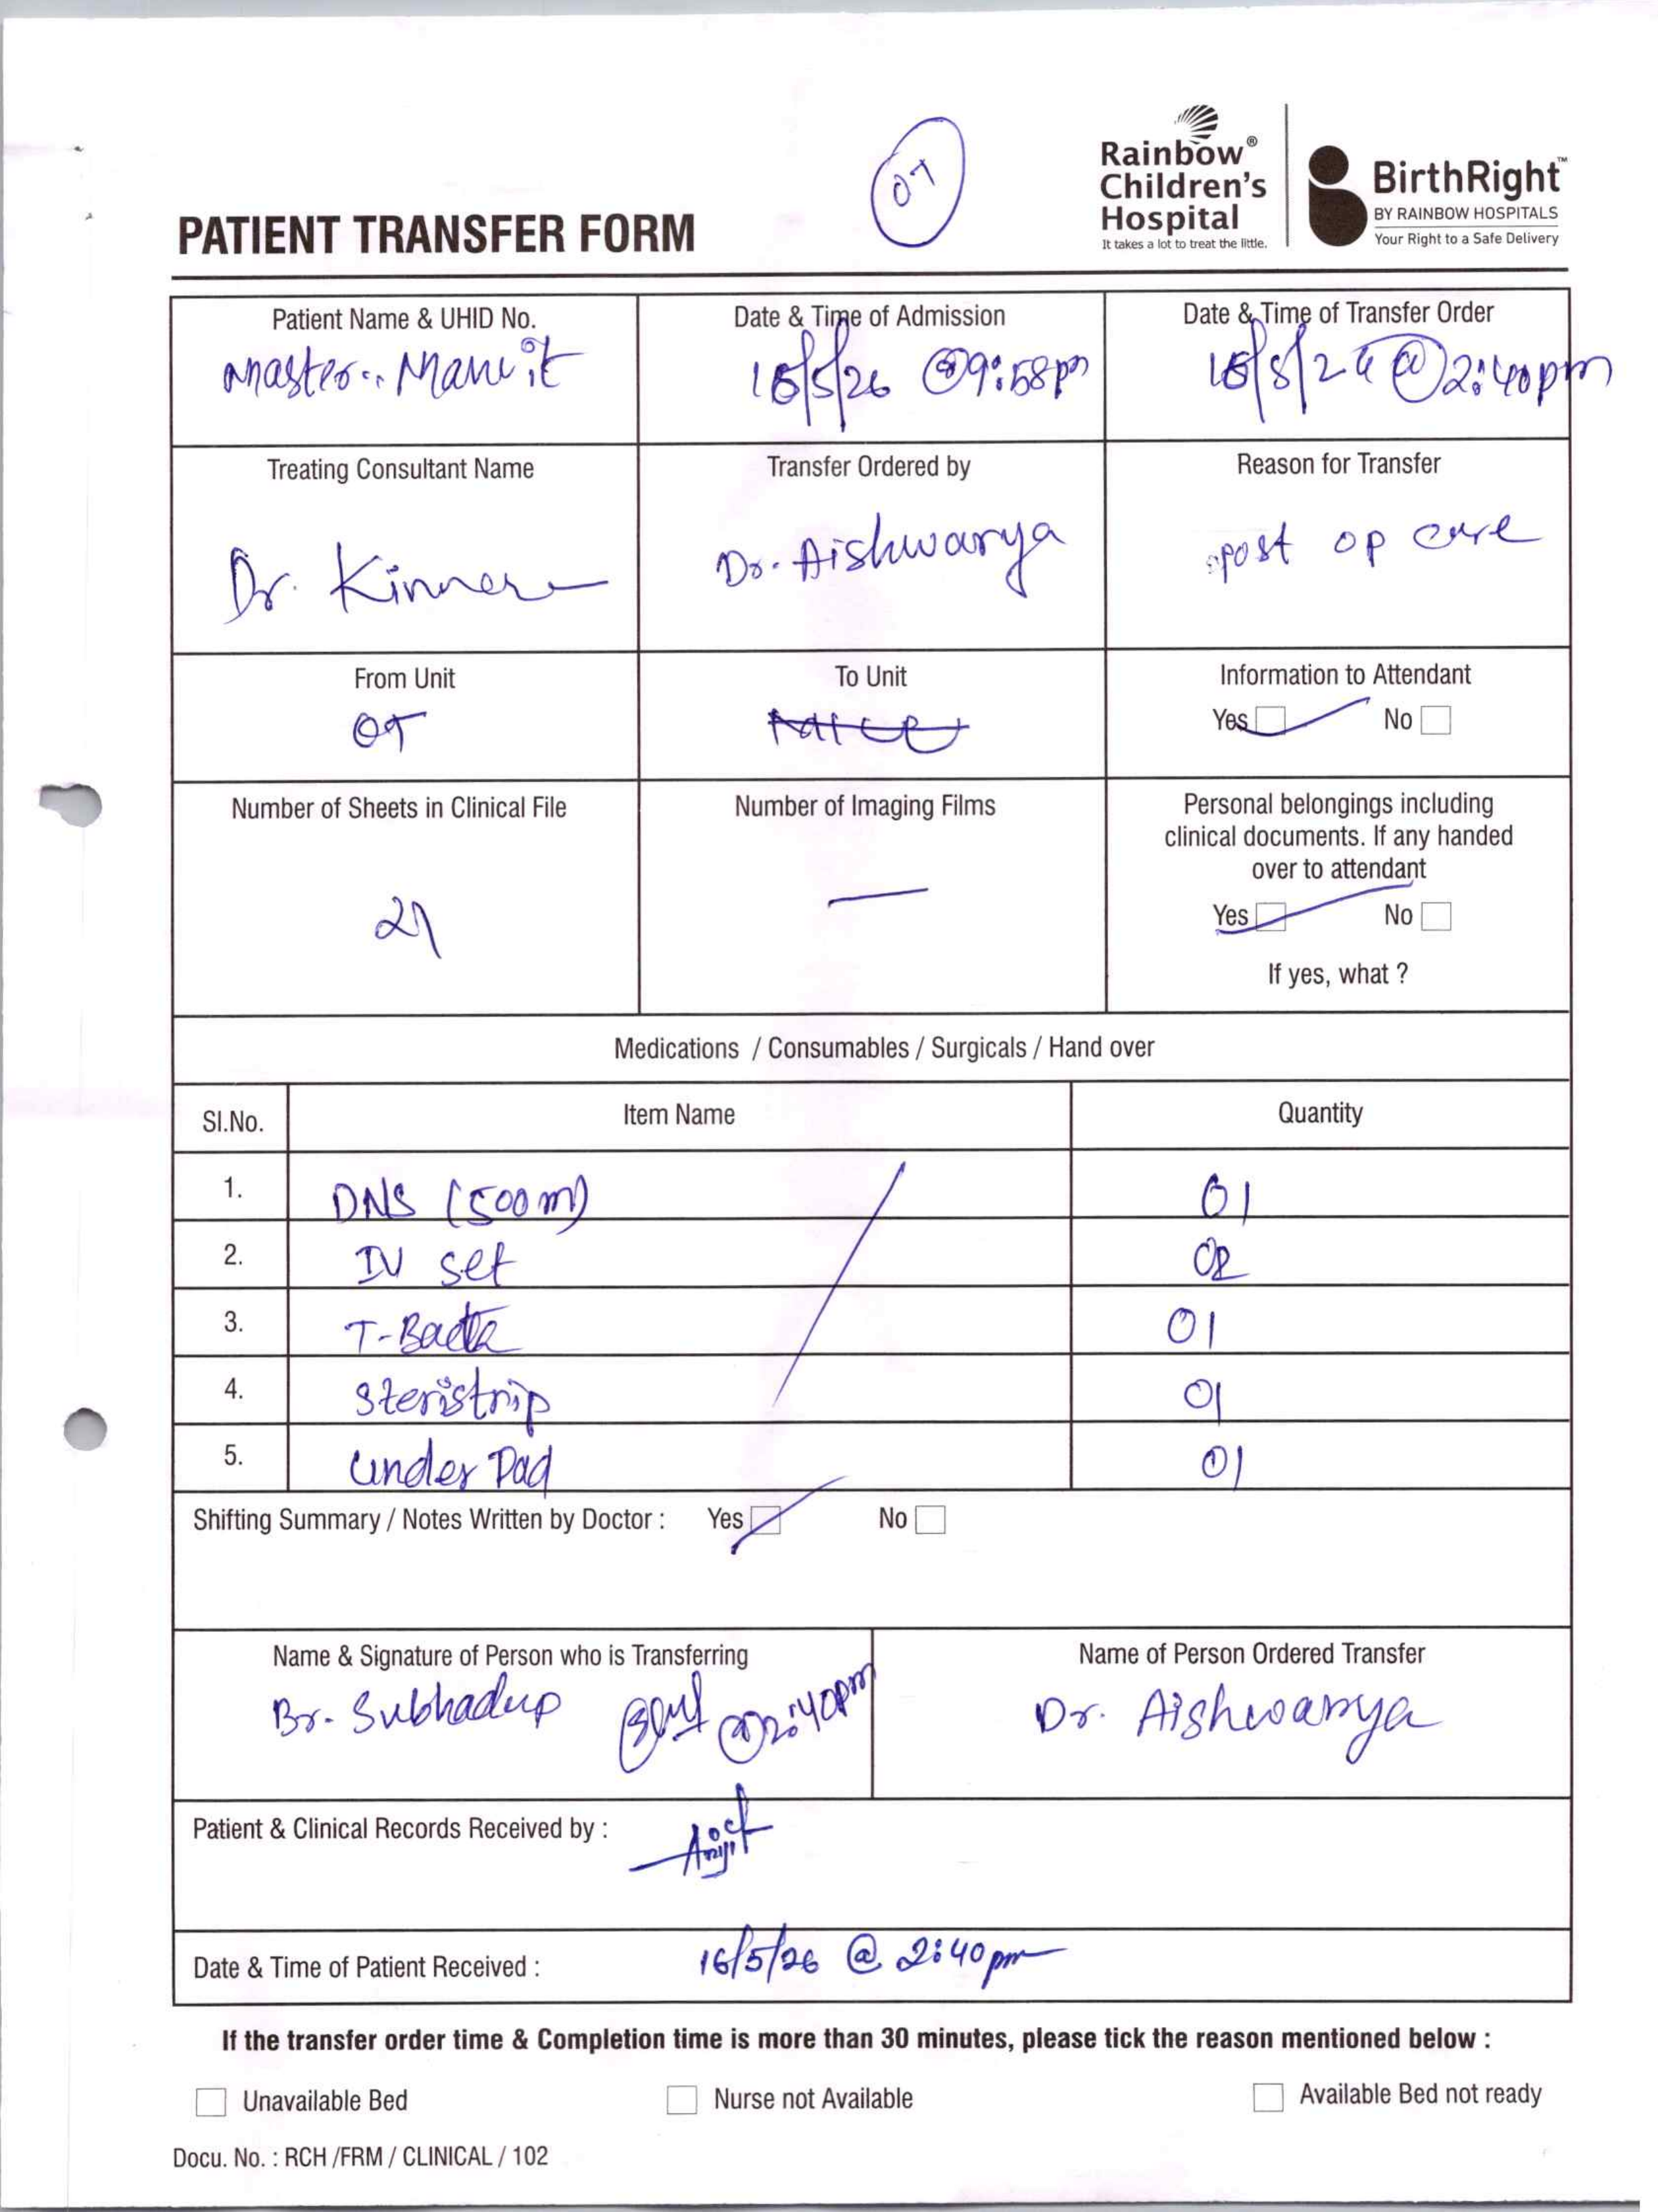 07
Rainbow®
Children's
Hospital
It takes a lot to treat the little.
BirthRight™
BY RAINBOW HOSPITALS
Your Right to a Safe Delivery
PATIENT TRANSFER FORM
Patient Name & UHID No. Date & Time of Admission Date & Time of Transfer Order
Master. 16/5/26 @9:58pm @2:40pm
Treating Consultant Name Transfer Ordered by Reason for Transfer
Dr. Aishwarya post op care
Dr. Kinnera
From Unit To Unit Information to Attendant
OT Yes No
Number of Sheets in Clinical File Number of Imaging Films Personal belongings including
clinical documents. If any handed
over to attendant
21 — Yes No
If yes, what ?
Medications / Consumables / Surgicals / Hand over
Sl.No. Item Name Quantity
1. DNS (500ml) 01
2. IV set 02
3. T-Bacta 01
4. Steristrip 01
5. Under Pad 01
Shifting Summary / Notes Written by Doctor : Yes No
Name & Signature of Person who is Transferring Name of Person Ordered Transfer
Br. @2:40pm Dr. Aishwarya
Patient & Clinical Records Received by :
Date & Time of Patient Received : 16/5/26 @ 2:40pm
If the transfer order time & Completion time is more than 30 minutes, please tick the reason mentioned below :
Unavailable Bed Nurse not Available Available Bed not ready
Docu. No. : RCH /FRM / CLINICAL / 102